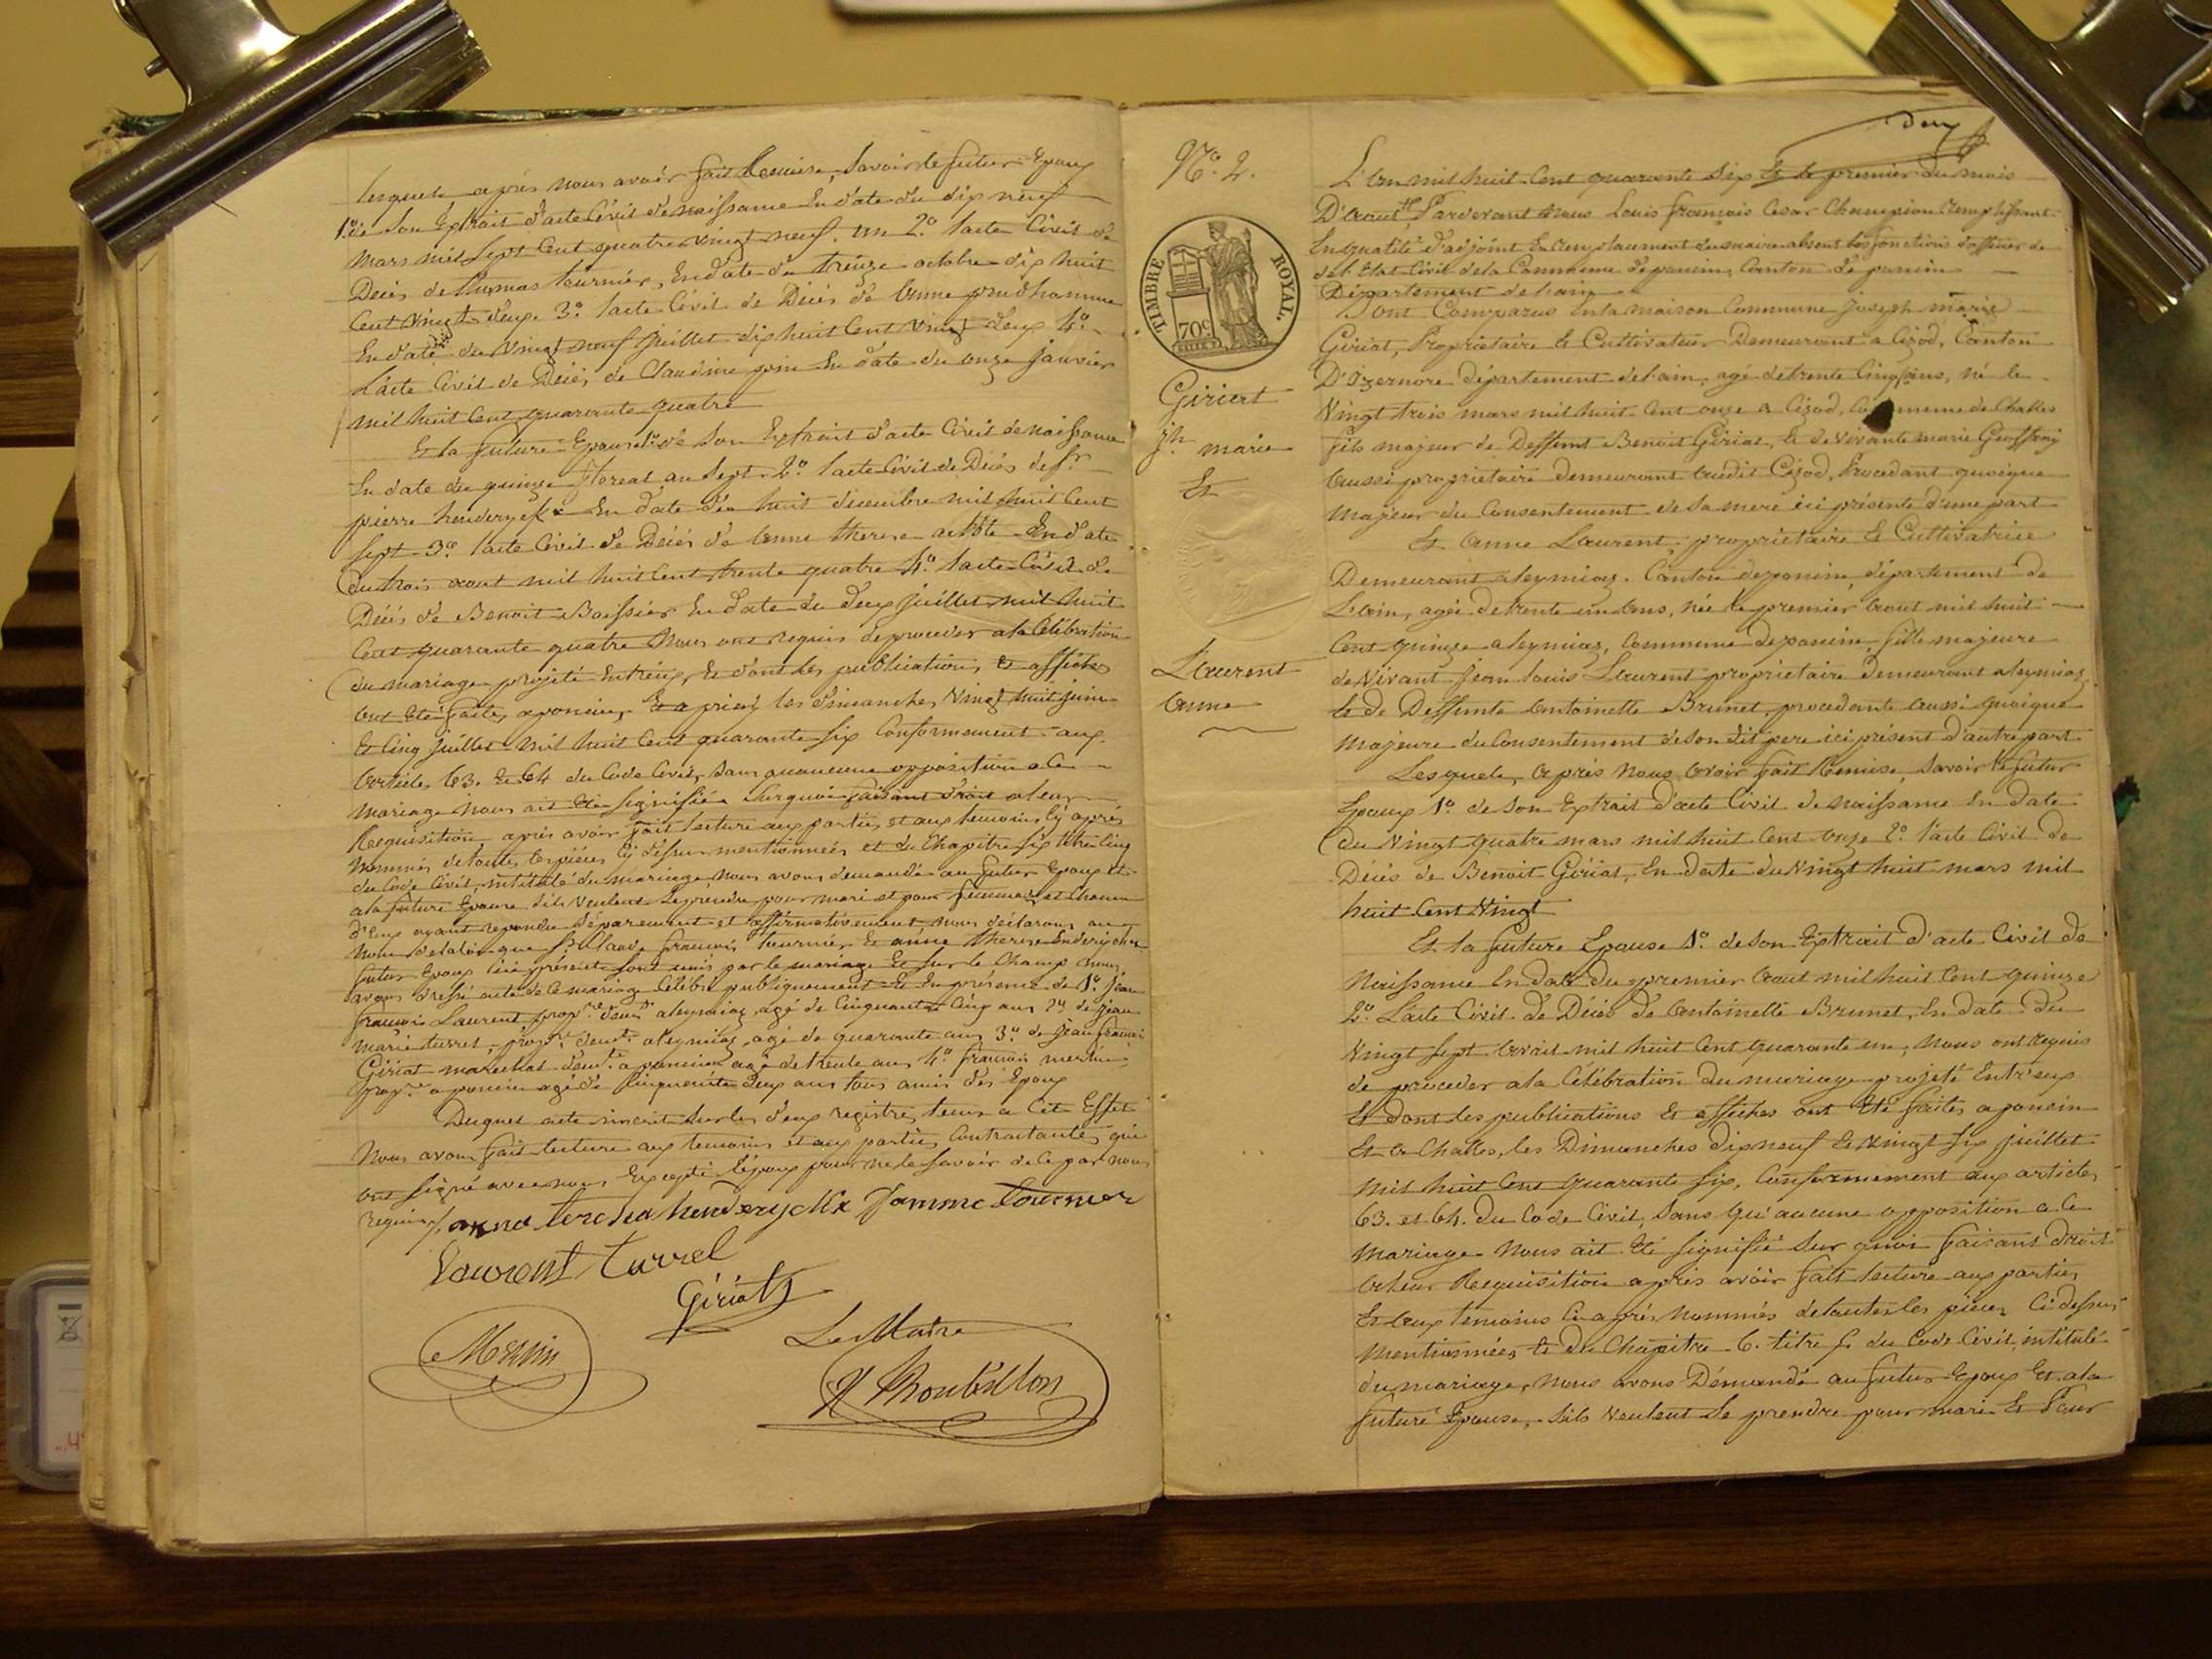 lesquels après nous avoir fait Remise, Savoir le futur Epoux
1.º de Son Extrait d'acte Civil de naissance En date du dix neuf
mars mil Sept Cent quatre vingt neuf. un 2.º l'acte Civil de
Décés de thomas tournier, En date du treize octobre dix huit
Cent vingt deux 3.º l'acte Civil de Décés de anne prudhomme
En date du vingt neuf Juillet dix huit Cent vingt deux 4.º
L'acte Civil de Décés de Claudine En date du onze janvier
mil huit Cent quarante quatre
Et la future Epouse 1.º de Son Extrait d'acte Civil de naissance
En date du quinze floreal an Sept 2.º l'acte Civil de Décés de
pierre henderyckx En date du huit décembre mil huit Cent
Sept 3.º l'acte Civil de Décés de anne therese En date
du trois aout mil huit Cent trente quatre 4.º l'acte Civil de
Décés de Benoit Boissier En date du deux juillet mil huit
Cent quarante quatre Nous ont requis de proceder a la Célébration
du mariage projeté Entr'eux, Et dont les publications Et affiches
ont Eté faites a poncin, Et a les dimanches Vingt huit juin
Et Cinq juillet mil huit Cent quarante Six Conformement aux
articles 63. Et 64 du Code Civil, Sans qu'aucune opposition a Ce
mariage nous ait Eté Signifiée Sur quoi faisant droit a leur
Requisition, après avoir fait lecture aux parties et aux temoins Cy après
Nommés de toutes les pièces Cy dessus mentionnées et du Chapitre Six titre Cinq
du Code Civil, intitulé du mariage, nous avons demandé au futur Epoux Et
a la future Epouse S'ils veulent Se prendre pour mari et pour femme, et Chacun
d'Eux ayant repondu Séparement et affirmativement, nous déclarons au
Nom de la loi que Claude françois tournier Et anne therese
futur Epoux Sont unis par le mariage Et Sur le Champ nous
avons dressé acte de Ce mariage Célébré publiquement Et En présence de 1.º jean
françois Laurent, prop.re dem.t a leymiat, agé de Cinquante Cinq ans 2.º de jean
marie turrel, prop.re dem.t a leymiat, agé de quarante ans, 3.º de jean françois
Giriat marechal dem.t a poncin agé de trente ans 4.º françois mermin
prop.re a poncin agé de Cinquante deux ans tous amis des Epoux
Duquel acte inscrit Sur les deux registres tenus a Cet Effet
Nous avons fait lecture aux temoins et aux parties Contractantes, qui
ont Signé avec nous Excepté l'époux pour ne le Savoir de Ce par nous
requis anna teresia henderyckx femme tournier
Laurent turrel
Giriat
Mermin
Le Maire
Nº. 2.
TIMBRE ROYAL.
70c
Giriat
jh. marie
Et
Laurent
anne
deux
L'an mil huit Cent quarante Six Et le premier du mois
D'aout, Pardevant Nous Louis françois Cesar Champion remplissant
En qualité d'adjoint En remplacement du maire absent les fonctions d'officier de
de l'Etat Civil de la Commune de poncin, Canton de poncin
Département de l'ain
Sont Comparus En la maison Commune Joseph marie
Giriat, Propriétaire Et Cultivateur Demeurant a Cizod, Canton
D'Izernore département de l'ain, agé de trente Cinq ans, né le
Vingt trois mars mil huit Cent onze a Cizod, Commune de Challes
fils majeur de Deffunt Benoit Giriat, Et de Vivante marie Geoffray
aussi propriétaire demeurant audit Cizod, Procedant quoique
majeur du Consentement de Sa mere ici présente d'une part
Et Anne Laurent, propriétaire Et Cultivatrice
Demeurant a leymiat, Canton de poncin, département de
L'ain, agée de trente un ans, née le premier aout mil huit
Cent quinze a leymiat, Commune de poncin, fille majeure
de Vivant Jean louis Laurent propriétaire demeurant a leymiat
Et de Deffunte antoinette Brunet, procedante aussi quoique
Majeure du Consentement de Son dit pere ici présent d'autre part
Lesquels, après nous avoir fait Remise, Savoir le futur
Epoux 1.º de Son Extrait d'acte Civil de naissance En date
du Vingt quatre mars mil huit Cent onze 2.º l'acte Civil de
Décés de Benoit Giriat, En date du Vingt huit mars mil
huit Cent Vingt
Et la future Epouse 1.º de Son Extrait d'acte Civil de
Naissance En date du premier aout mil huit Cent quinze
2.º L'acte Civil de Décés de antoinette Brunet, En date du
Vingt Sept avril mil huit Cent quarante un, Nous ont requis
de proceder a la Célébration du mariage projeté Entr'eux
Et dont les publications Et affiches ont Eté faites a poncin
Et a Challes, les Dimanches dix neuf Et Vingt Six juillet
Mil huit Cent quarante Six, Conformement aux articles,
63. et 64. du Code Civil, Sans qu'aucune opposition a Ce
mariage Nous ait Eté Signifié Sur quoi faisant droit
a leur Requisition après avoir fait lecture aux parties
Et aux temoins Ci après Nommés de toutes les pièces Ci dessus
Mentionnées, Et du Chapitre 6. titre 5. du Code Civil, intitulé
du mariage, nous avons Démandé au futur Epoux Et a la
future Epouse, S'ils Veulent Se prendre pour mari Et Pour